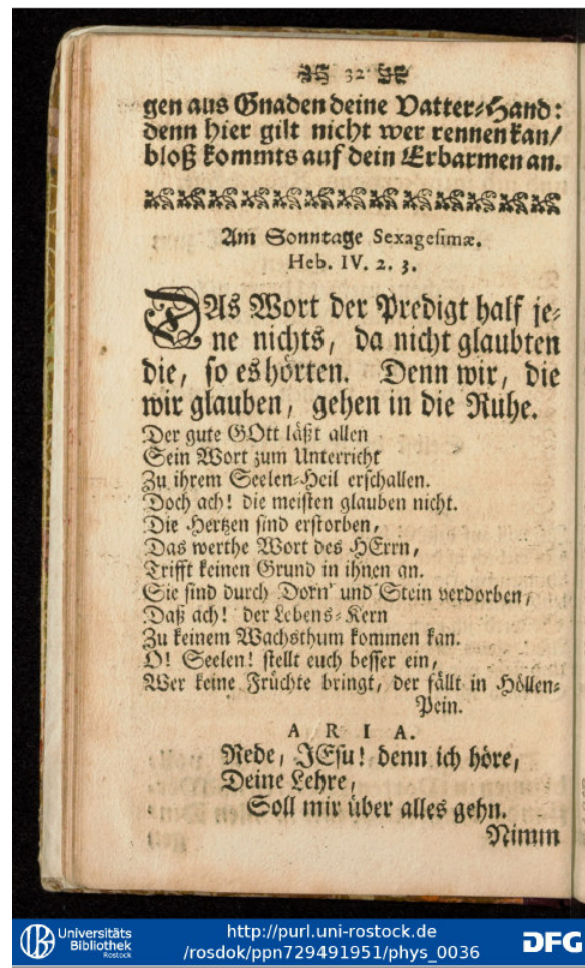 32.
gen aus Gnaden deine Vatter-Hand:
denn hier gilt nicht wer rennen kan/
bloß kommts auf dein Erbarmen an.
Am Sonntage Sexagesimæ.
Heb. IV. 2. 3.
DAs Wort der Predigt half je-
ne nichts, da nicht glaubten
die, so es hörten. Denn wir, die
wir glauben, gehen in die Ruhe.
Der gute GOtt läßt allen
Sein Wort zum Unterricht
Zu ihrem Seelen-Heil erschallen.
Doch ach! die meisten glauben nicht.
Die Hertzen sind erstorben,
Das werthe Wort des HErrn,
Trifft keinen Grund in ihnen an.
Sie sind durch Dorn' und Stein verdorben,
Daß ach! der Lebens-Kern
Zu keinem Wachsthum kommen kan.
O! Seelen! stellt euch besser ein,
Wer keine Früchte bringt, der fällt in Höllen-
Pein.
ARIA.
Rede, JEsu! denn ich höre,
Deine Lehre,
Soll mir über alles gehn.
Nimm
Universitäts
Bibliothek
Rostock
http://purl.uni-rostock.de
/rosdok/ppn729491951/phys_0036
DFG